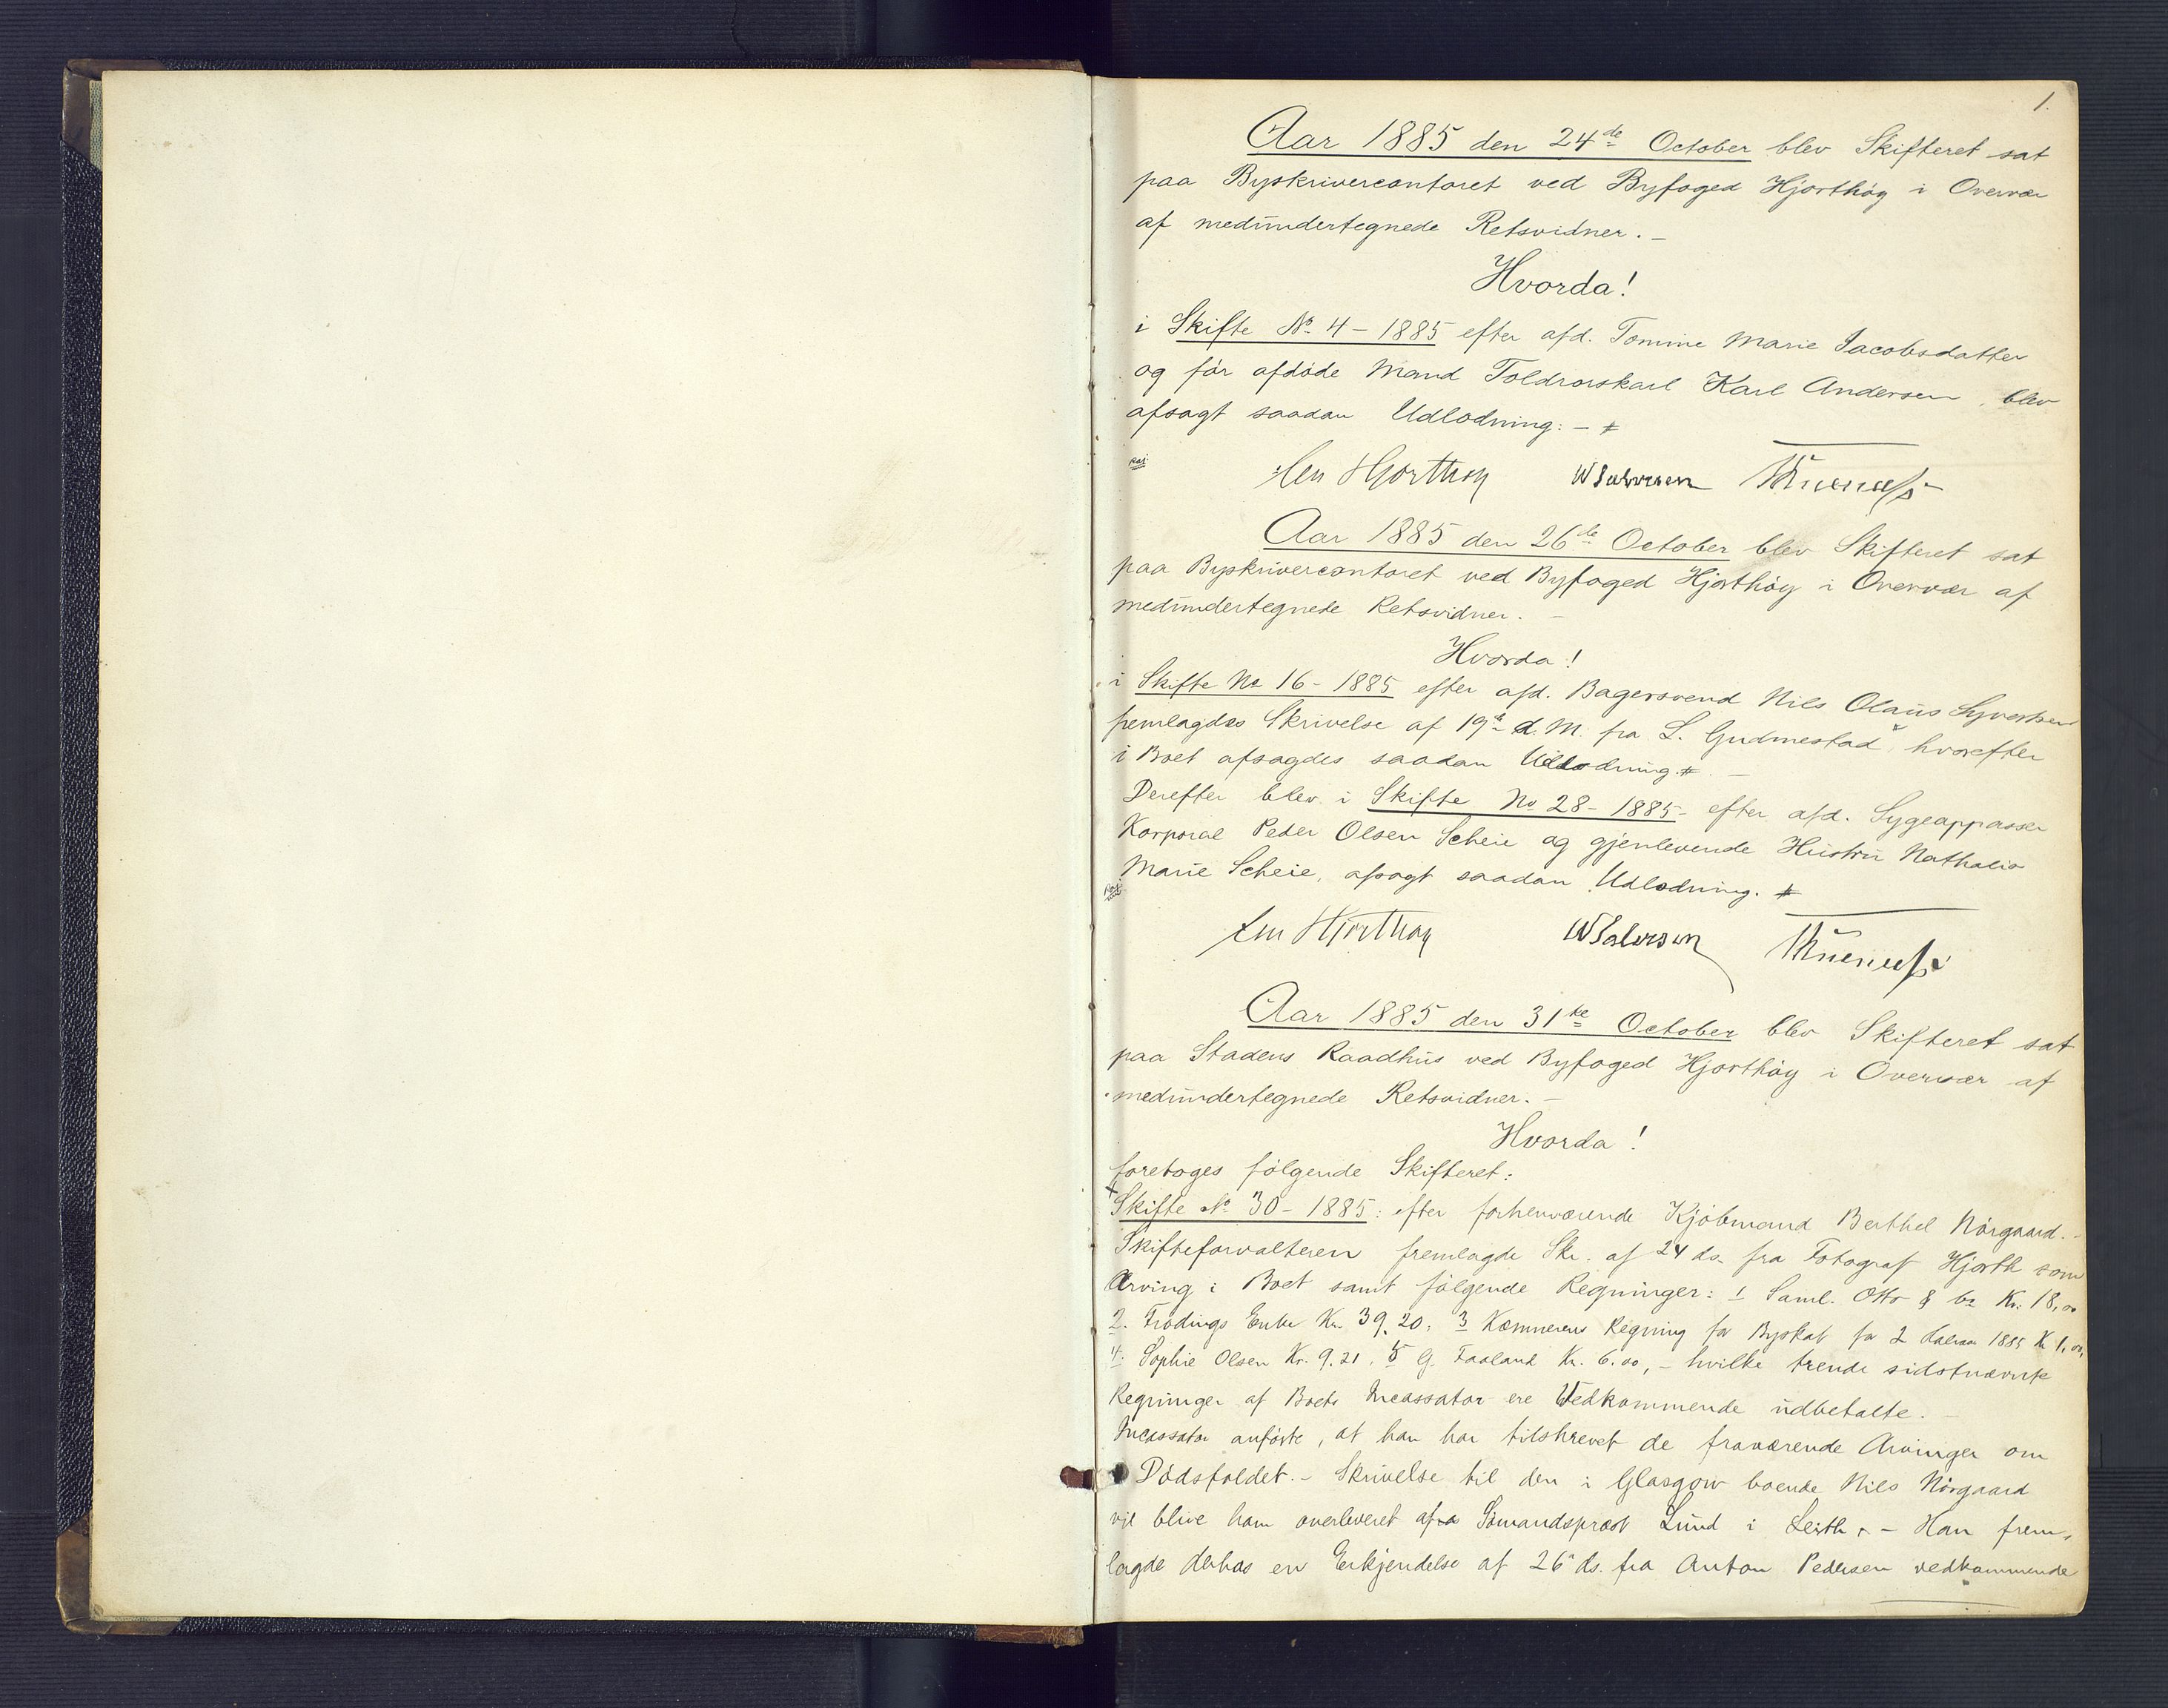 1.
Aar 1885 den 24de October blev Skifteret sat
paa Byskrivercontoret ved Byfoged Hjorthøy i Overvær
af medundertegnede Retsvidner. –
Hvorda!
i Skifte No 4 – 1885 efter afd. Tomine Marie Jacobsdatter
og før afdøde Mand Toldrorskarl Karl Andersen, blev
afsagt saadan Udlodning: – #
Hjorthøy
Aar 1885 den 26de October blev Skifteret sat
paa Byskrivercontoret ved Byfoged Hjorthøy i Overvær af
medundertegnede Retsvidner. –
Hvorda!
i Skifte No 16 – 1885 efter afd. Bagersvend Nils Olaus Syvertsen
fremlagdes Skrivelse af 19de d. M. fra L. Gudmestad, hvorefter
i Boet afsagdes saadan Udlodning. # –
Derefter blev i Skifte No 28 – 1885 – efter afd. Sygeappasser
Korporal Peder Olsen Scheie og gjenlevende Hustru Nathalia
Marie Scheie, afsagt saadan Udlodning. #
Hjorthøy
Aar 1885 den 31te October blev Skifteret sat
paa Stadens Raadhus ved Byfoged Hjorthøy i Overvær af
medundertegnede Retsvidner. –
Hvorda!
foretoges følgende Skifteret:
Skifte No 30 – 1885: efter forhenværende Kjøbmand Berthel Nørgaard. –
Skifteforvalteren fremlagde Skr. af 24 ds. fra Fotograf Hjorth som
Arving i Boet samt følgende Regninger: 1 Saml. Otto & Co Kr. 18,00
2. Frødings Enke Kr. 39.20, 3 Kæmnerens Regning for Byskat for 2 Halvaar 1885 Kr 1,00,
4. Sophie Olsen Kr. 9.21, 5 G. Faaland Kr. 6.00, – hvilke trende sidstnævnte
Regninger af Boets Incassator ere Vedkommende udbetalte. –
Incassator anførte, at han har tilskrevet de fraværende Arvinger om
Dødsfaldet. – Skrivelse til den i Glasgow boende Nils Nørgaard
vil blive ham overleveret af Sømandsprest Lund i Leith. – Han frem-
lagde derhos en Erkjendelse af 26 ds. fra Anton Pedersen vedkommende